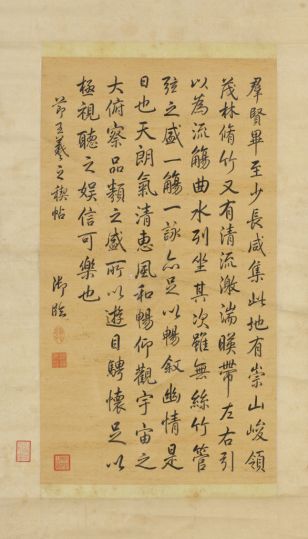 羣賢畢至少長咸集此地有崇山峻領
茂林脩竹又有清流激湍暎帶左右引
以為流觴曲水列坐其次雖無絲竹管
弦之盛一觴一詠亦足以暢敘幽情是
日也天朗氣清惠風和暢仰觀宇宙之
大俯察品類之盛所以遊目騁懷足以
極視聽之娛信可樂也
節王羲之禊帖 御臨